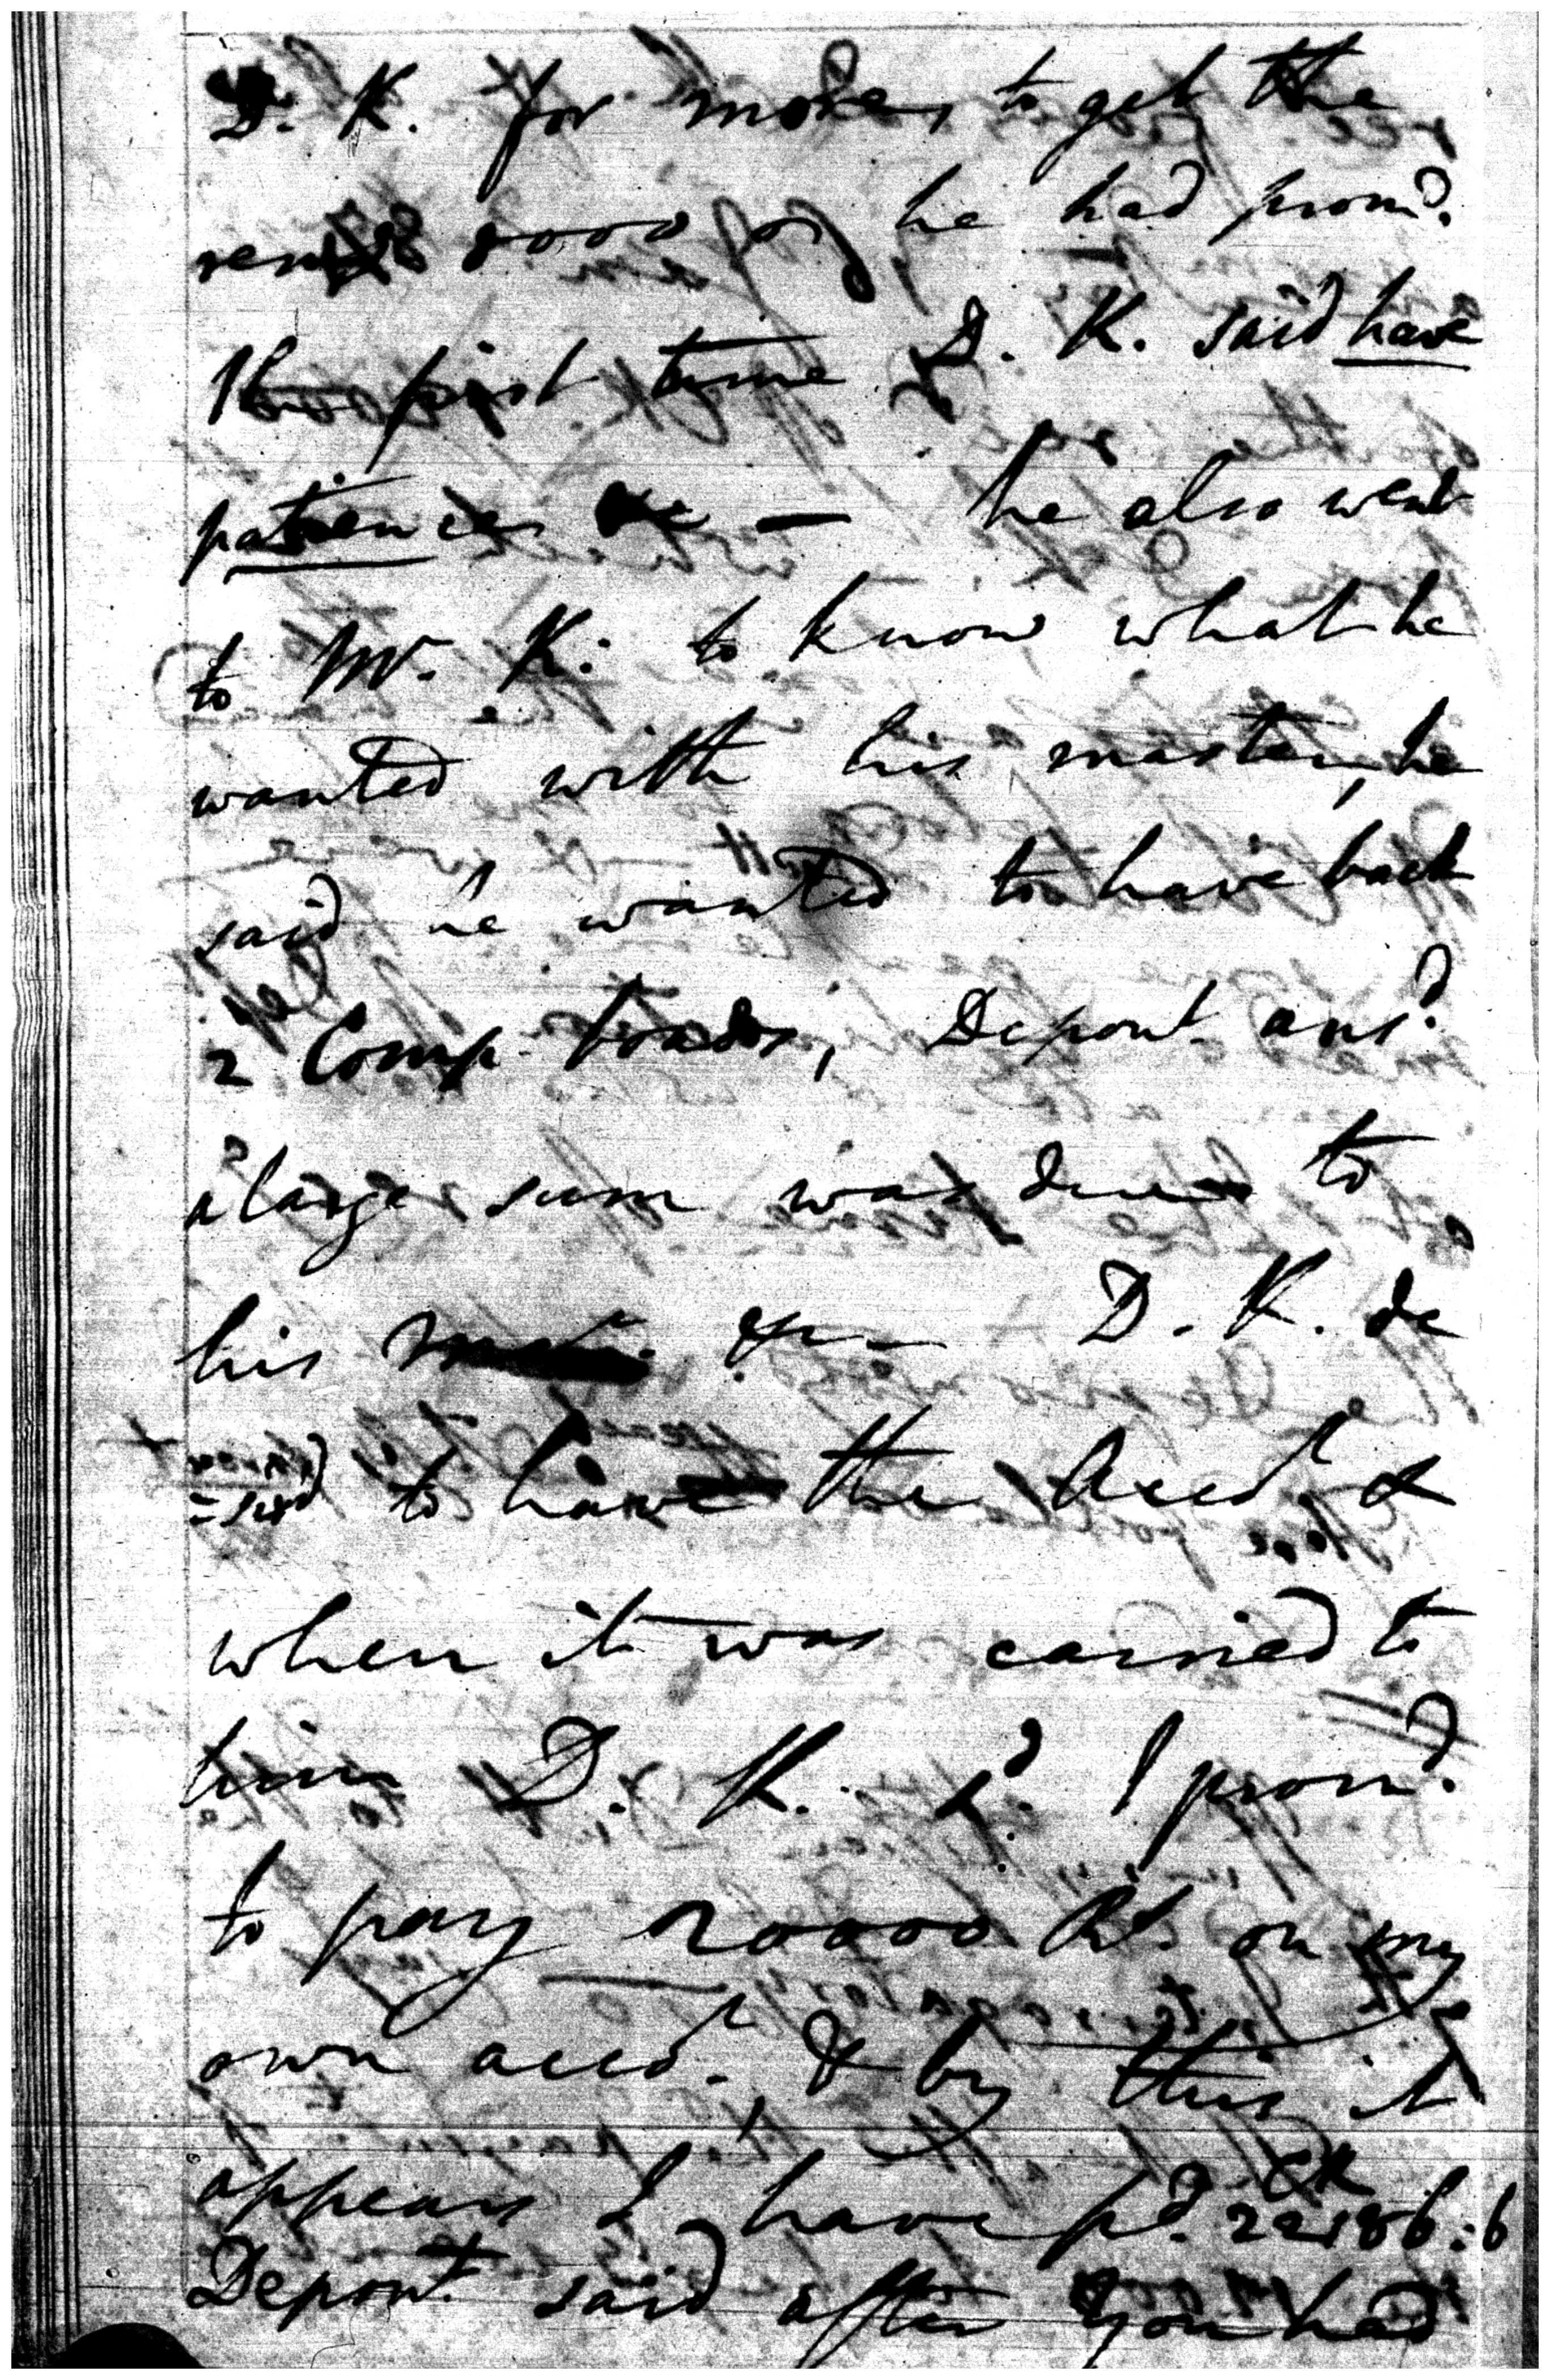 D. K. for money to get the
8000 he had prom.d
the first time D. K. said have
patience &c — he also went
to Mr. K. to know what he
wanted with his master, he
said he wanted to have back
2 Comp. bonds, Depont. ans.d
a large sum was due to
his D. K. de
=sird to have the Acco.t &
when it was carried to
him D. K. s.d I prom.d
to pay 20000 R.s on my
own acco.t, & by this it
appears I have p.d 22186:6
Depont. said after you had